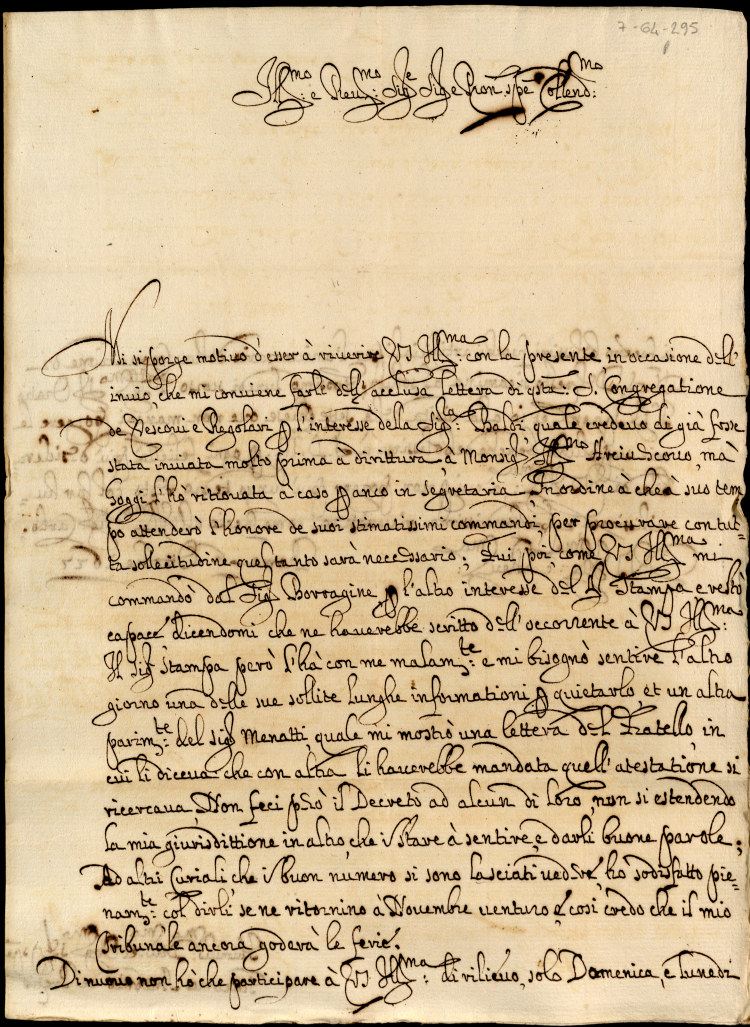 7-64-295
Ill.mo e Rev.mo Sig.re Sig.re e Pron. Collend.mo
Mi si porge motivo d'esser à riverire VS Ill.ma: con la presente in occasione dell'
invio, che mi conviene farle dell'acclusa lettera di q.sta: S. Congregatione
de Vescovi e Regolari p l'interesse della Sig.ra: Baldi quale credevo di già fosse
stata inviata molto prima à dirittura à Monsig.r Ill.mo Arcivescovo, mà
hoggi l'hò ritrovata a caso p anco in segretaria. In ordine à che à suo tem
po attenderò l'honore de suoi stimatissimi commandi, per procurare con tut-
ta sollecitudine quel tanto sarà necessario; Fui poi, come VS Ill.ma mi
commandò dal Sig.r Borragine p l'altro interesse del Stampa e restò
capace dicendomi che ne haverebbe scritto dell'occorrente à VS Ill.ma:
Il Sig.r Stampa però l'hà con me malam.te: e mi bisognò sentire l'altro
giorno una delle sue sollite lunghe informationi p quietarlo, et un altra
parim.te: del Sig.r Menatti, quale mi mostrò una lettera del Fratello in
cui li diceva che con altra li haverebbe mandata quell'atestatione si
ricercava. Non feci però il Decreto ad alcun di loro, non si estendendo
la mia giurisdittione in altro che i stare à sentire, e darli buone parole;
Ad altri Curiali che i buon numero si sono lasciati vedere, hò sodisfatto pie-
nam.te: col dirli se ne ritornino à Novembre venturo e così credo che il mio
Tribunale ancora goderà le ferie.
Di nuovo non hò che participare à VS Ill.ma: di rilievo, solo Domenica, e lunedi